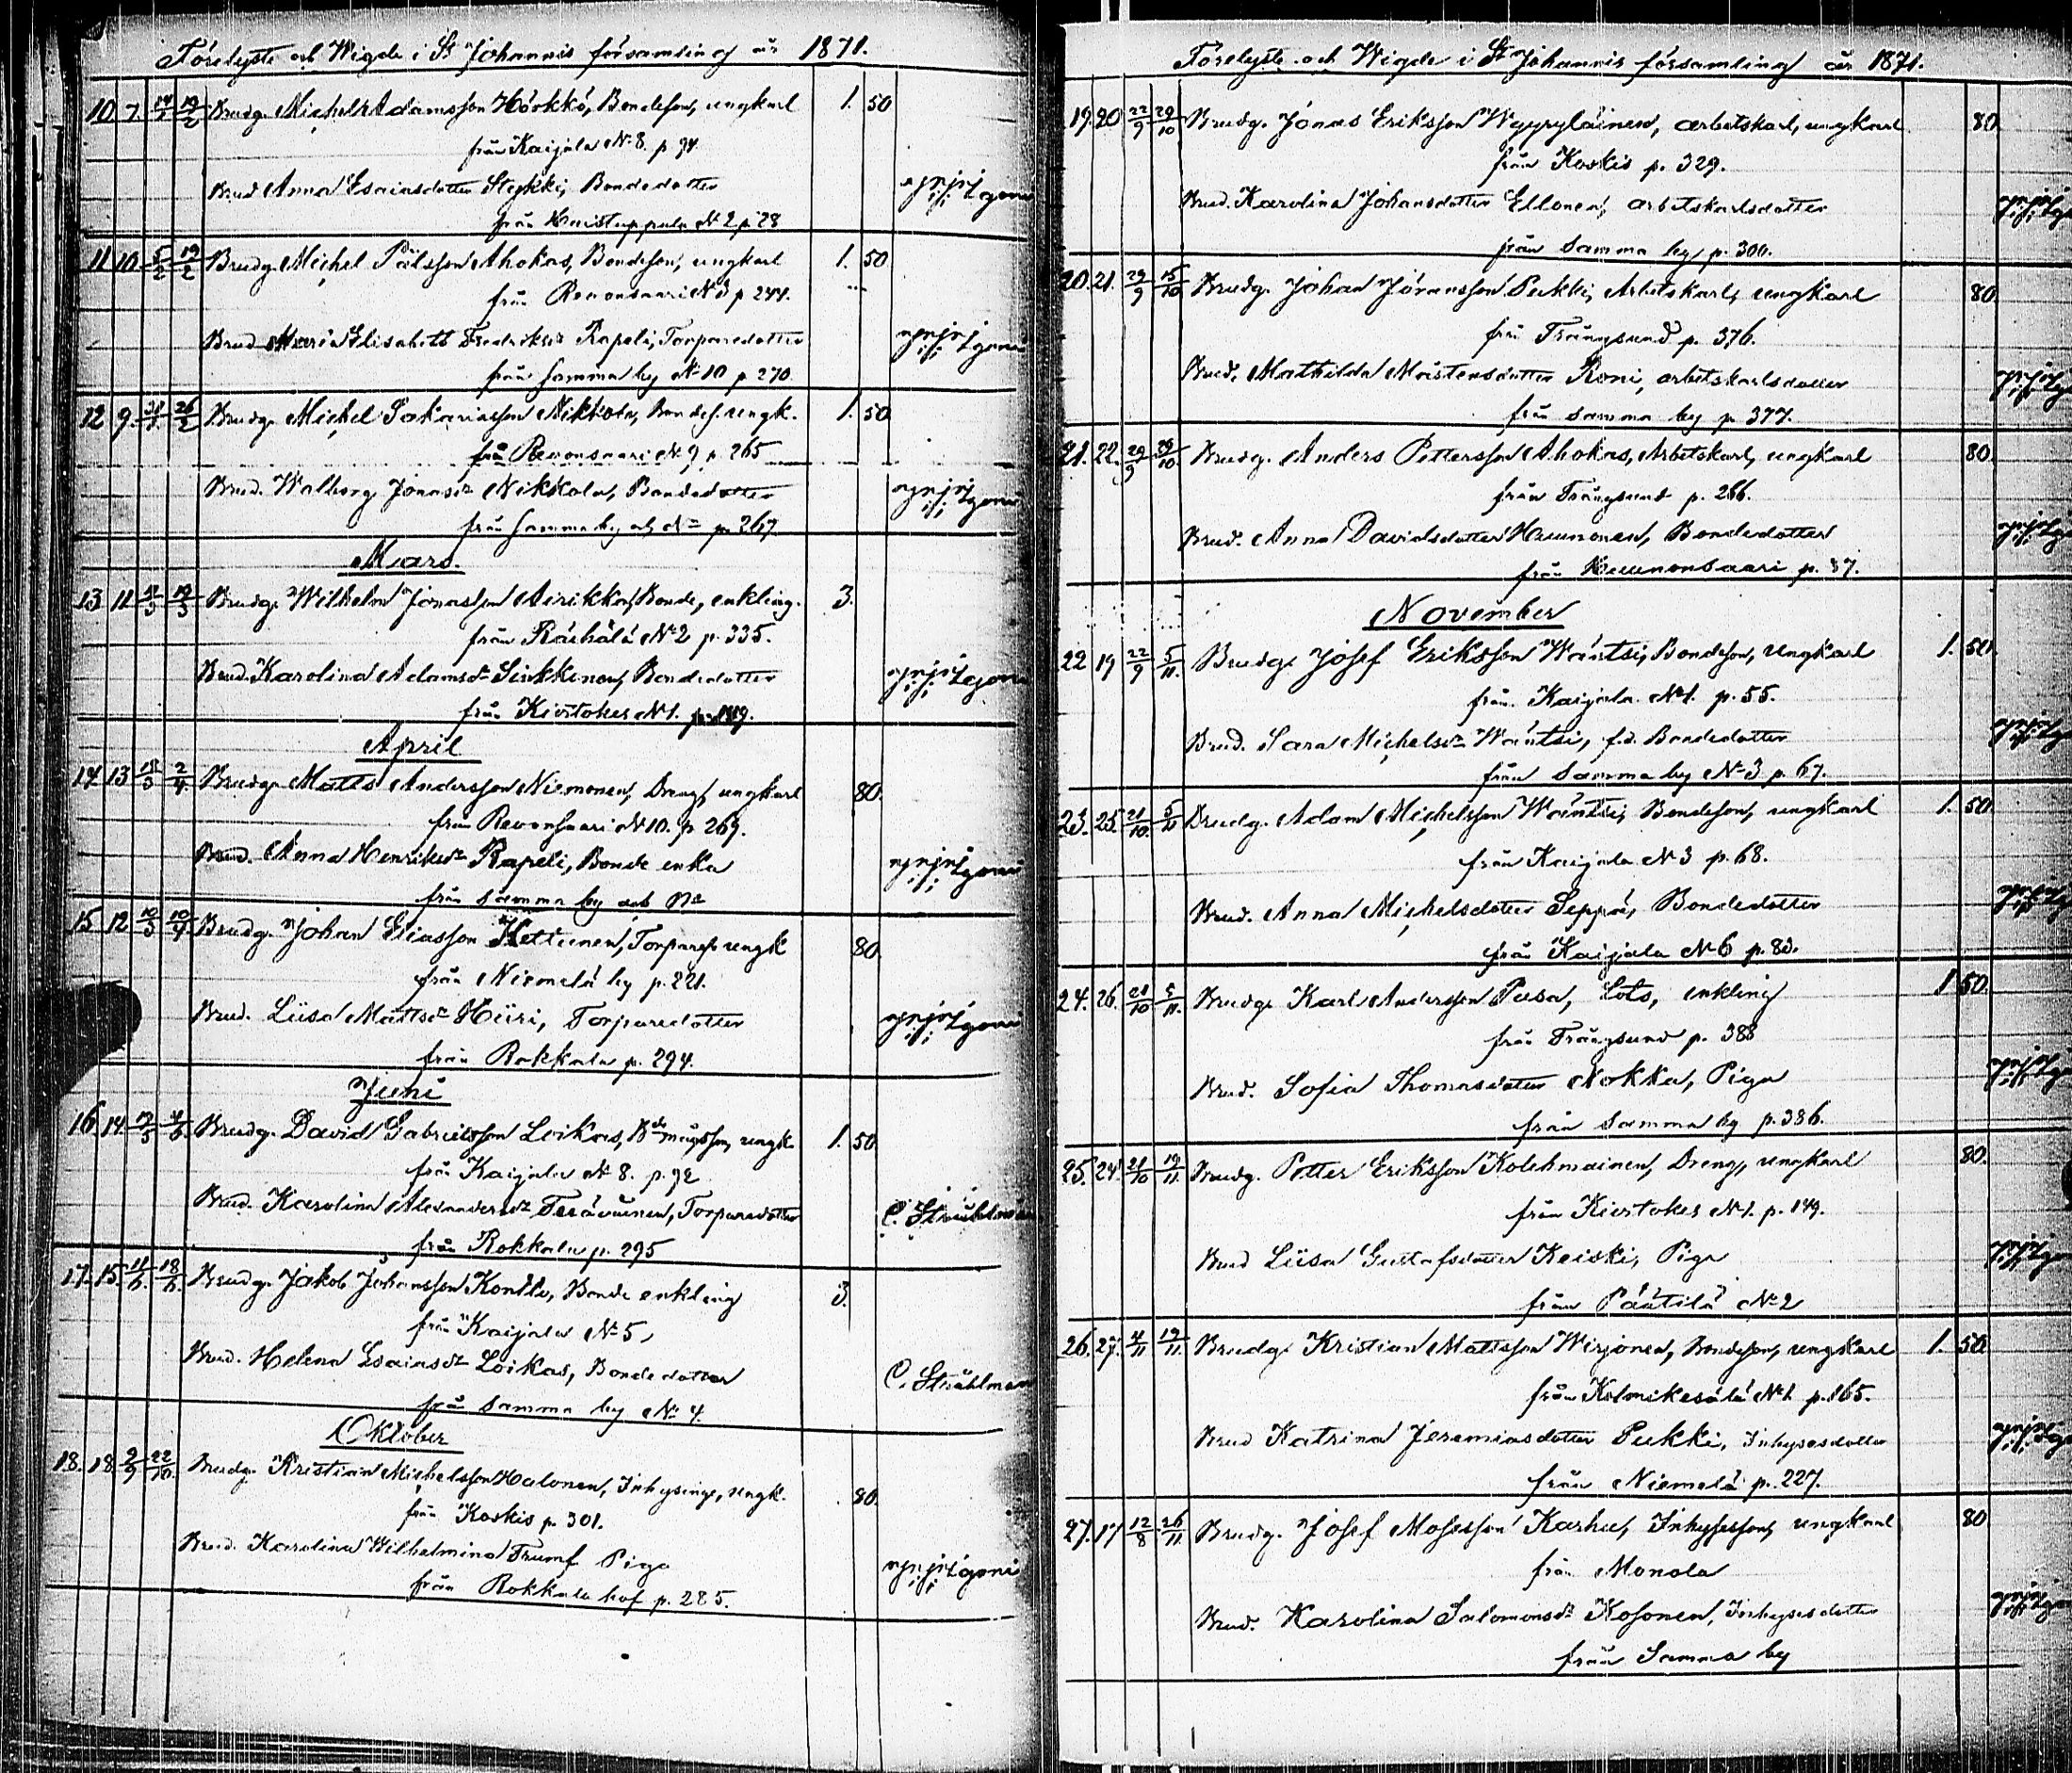 Förelyste och Wigde i St Johannis församling år 1871.
10 7 Brudg. Michel Adamsson Hörkkö, Bondeson, ungkarl 1. 50
från Kaijala No 8. p. 94.
Brud Anna Esaiasdotter Bondedotter
från No 2 p. 28
11 10 5/2 19/2 Brudg. Michel Pålsson Ahokas, Bondeson, ungkarl 1. 50
från Revonsaari No 3 p 244.
Brud Mari Elisabeth Fredriksdr Rapeli, Torparedotter
från samma by No 10 p 270.
12 9 26/2 Brudg. Michel Sakariasson Nikkola, Bondes. ungk. 1. 50
från Revonsaari No 9 p. 265
Brud. Walborg Jonasdr Nikkola, Bondedotter
från samma by och No p. 267.
Mars.
13 11 19/3 Brudg. Wilhelm Jonasson Airikka, Bonde, enkling. 3.
från No 2 p. 335.
Brud. Karolina Adamsdr Sinkkonen, Bondedotter
från Kirstokes No 1.
April
14 13 2/4 Brudg. Matts Andersson Niemonen, Dreng, ungkarl 80.
från Revonsaari No 10. p 269.
Brud. Anna Henriksdr Rapeli, Bonde enka
från samma by och No
15 12 Brudg. Johan Eliasson Kettunen, Torpares. ungk 80.
från Niemelä by p. 221.
Brud. Liisa Mattsdr Hiiri, Torparedotter
från Rokkala p. 294.
Juni
16. 14. 4/6. Brudg. David Gabrielsson Loikas, ungk. 1. 50
från Kaijala No 8. p. 92
Brud. Karolina Alexandersdr Torparedotter
C. Stråhlman
från Rokkala p. 295
17. 15. 11/6. 18/6. Brudg. Jakob Johansson Konttu, Bonde enkling 3.
från Kaijala No 5,
Brud. Helena Esaiasdr Loikas, Bondedotter
C. Stråhlman
från samma by No 4.
Oktober
18. 18 2/9 22/10. Brudg. Kristian Michelsson Halonen, Inhysing, ungk. 80.
från Koskis p. 301.
Brud. Karolina Wilhelmina Trumf Piga
från Rokkala hof p. 285.
Förelyste och Wigde i St Johannis församling år 1871.
19. 20 22/9 29/10 Brudg. Jonas Eriksson Wyyryläinen, arbetskarl, ungkarl 80
från Koskis p. 329.
Brud. Karolina Johansdotter Ellonen, arbetskarlsdotter
från samma by p. 300.
20. 21. 29/9 15/10 Brudg. Johan Göransson Pukki, Arbetskarl, ungkarl 80.
från Trångsund p. 376.
Brud. Mathilda Mårtensdotter Roni, arbetskarlsdotter
från samma by p. 377.
21. 22. 29/9 29/10. Brudg. Anders Pettersson Ahokas, Arbetskarl, ungkarl 80.
från Trångsund p. 266.
Brud. Anna Davidsdotter Hannonen, Bondedotter
från p. 37.
November
22 19 22/9 5/11. Brudg. Josef Eriksson Wäntsi, Bondeson, ungkarl 1. 50.
från Kaijala No 1. p. 55.
Brud. Sara Michelsdr Wäntsi, f.d. Bondedotter
från samma by No 3 p. 67.
23. 25. 21/10. 5/11 Brudg. Adam Michelsson Wäntsi, Bondeson, ungkarl 1. 50.
från Kaijala No 3 p. 68.
Brud. Anna Michelsdotter Seppä, Bondedotter
från Kaijala No 6 p. 83.
24. 26. 21/10 5/11. Brudg. Karl Andersson Pusa, Lots, enkling 1 50.
från Trångsund p. 388
Brud. Sofia Thomasdotter Nokka, Piga
från samma by p. 386.
25. 24. 21/10 19/11. Brudg. Petter Eriksson Kolehmainen, Dreng, ungkarl 80.
från Kirstokes No 1. p. 149.
Brud Liisa Gustafsdotter Keiski, Piga
från Päätilä No 2
26. 27. 4/11 19/11. Brudg. Kristian Mattsson Wirjonen, Bondeson, ungkarl 1. 50.
från Kolmikesälä No 1. p. 165.
Brud Katrina Jeremiasdotter Pukki, Inhysesdotter
från Niemelä p. 227.
27. 17 12/8 26/11. Brudg. Josef Mosesson Karhu, Inhysesson, ungkarl 80
från Monola
Brud. Karolina Salomonsdr Kosonen, Inhysesdotter
från Samma by